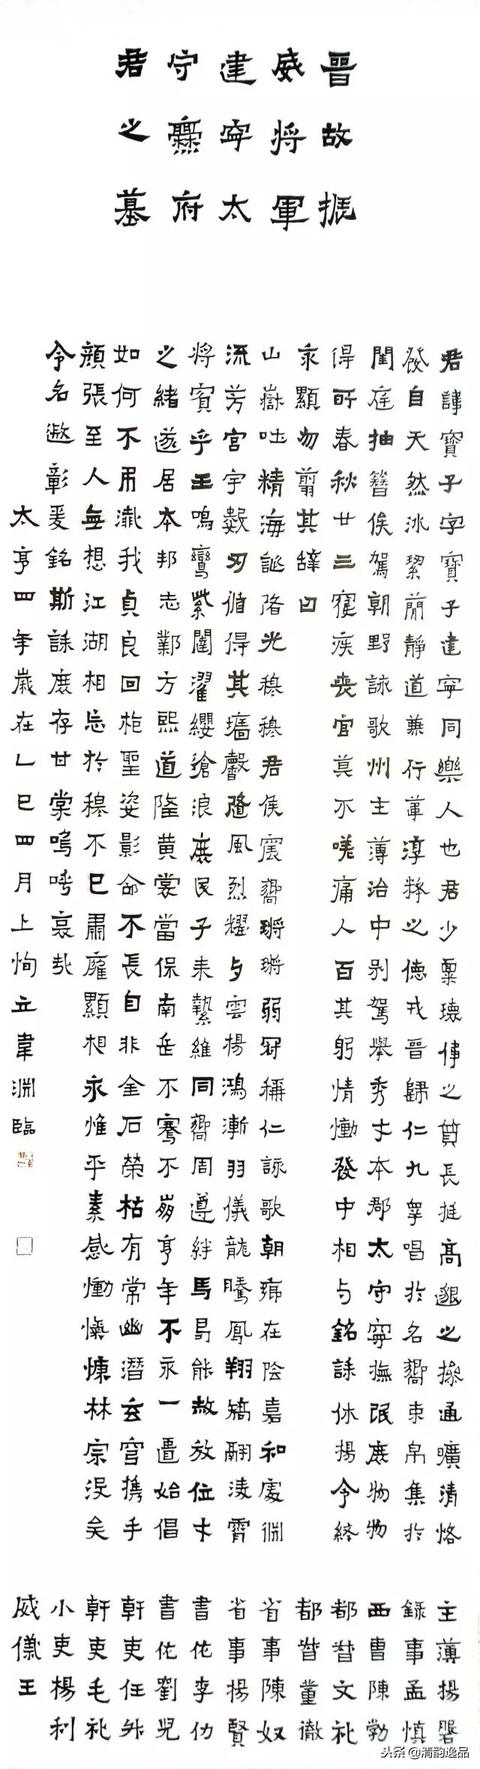 晉故振
威將軍
建寧太
守爨府
君之墓
君諱寶子字寶子建寧同樂人也君少稟瓌偉之質長挺高邈之操通曠清恪
發自天然冰絜蕳靜道兼行葦淳粹之德戎晉歸仁九皋唱於名嚮束帛集於
閨庭抽簪俟駕朝野詠歌州主薄治中别駕舉秀才本郡太守寧撫氓庶物物
得所春秋廿三寢疾喪官莫不嗟痛人百其躬情慟發中相与銘誄休揚令終
永顯勿翦其辞曰
山嶽吐精海誕陷光穆穆君侯震嚮鏘鏘弱冠稱仁詠歌朝鄉在陰嘉和處淵
流芳宮宇數刃循得其廧馨隨風烈耀与雲揚鴻漸羽儀龍騰鳳翔矯翮凌霄
將賓乎王鳴鸞紫闥濯纓滄浪庶民子来縶維同嚮周遵絆馬曷能赦放位才
之緒遂居本邦志鄴方熙道隆黃裳當保南岳不騫不崩享年不永一匱始倡
如何不弔殲我貞良回枹聖姿影命不長自非金石榮枯有常幽潛玄穹携手
顏張至人無想江湖相忘於穆不已肅雍顯相永惟平素感慟愾慷林宗没矣
令名遐彰爰銘斯誄庶存甘棠嗚呼哀哉
太亨四年歲在乙巳四月上恂立韋淵臨
主薄楊磐
錄事孟慎
西曹陳勃
都督文礼
都督董徹
省事陳奴
省事楊賢
書佐李仂
書佐劉兒
幹吏任升
幹吏毛礼
小吏楊利
威儀王
头条@清韵逸品